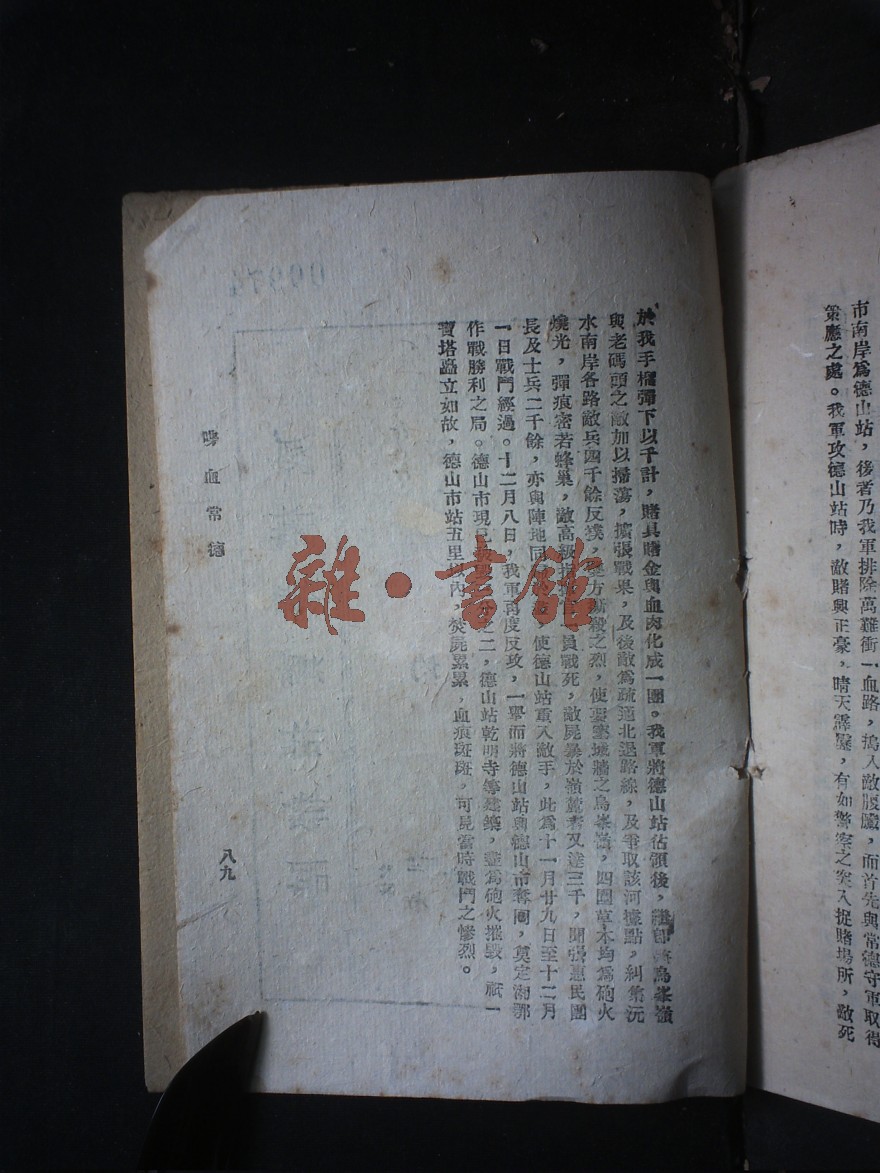 市南岸爲德山站，後者乃我軍排除萬難衝一血路，搗入敵腹臟，而首先與常德守軍取得
策應之處。我軍攻德山站時，敵賭興正豪，晴天霹靂，有如警察之突入捉賭場所，敵死
於我手榴彈下以千計，賭具賭金與血肉化成一團。我軍將德山站佔領後，繼卽將烏峯嶺
與老碼頭之敵加以掃蕩，擴張戰果，及後敵爲疏通北退路線，及爭取該河據點，糾集沅
水南岸各路敵兵四千餘反撲，雙方廝殺之烈，使城牆之烏峯嶺，四圍草木均爲砲火
燒光，彈痕密若蜂巢，敵高級指揮官員戰死，敵屍暴於嶺麓者又達三千，聞張惠民團
長及士兵二千餘，亦與陣地同，使德山站重入敵手，此爲十一月廿九日至十二月
一日戰鬥經過。十二月八日，我軍再度反攻，一舉而將德山站與德山市奪囘，奠定湘鄂
作戰勝利之局。德山市現已之二，德山站乾明寺等建築，盡爲砲火摧毀，祇一
寶塔矗立如故，德山市站五里以內，焚屍累累，血痕斑斑，可見當時戰鬥之慘烈。
喋血常德
八九
雜·書館